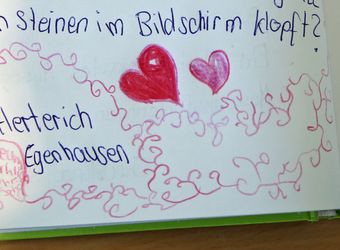 Steinen im Bildschirm klopft?
Herterich
Egenhausen